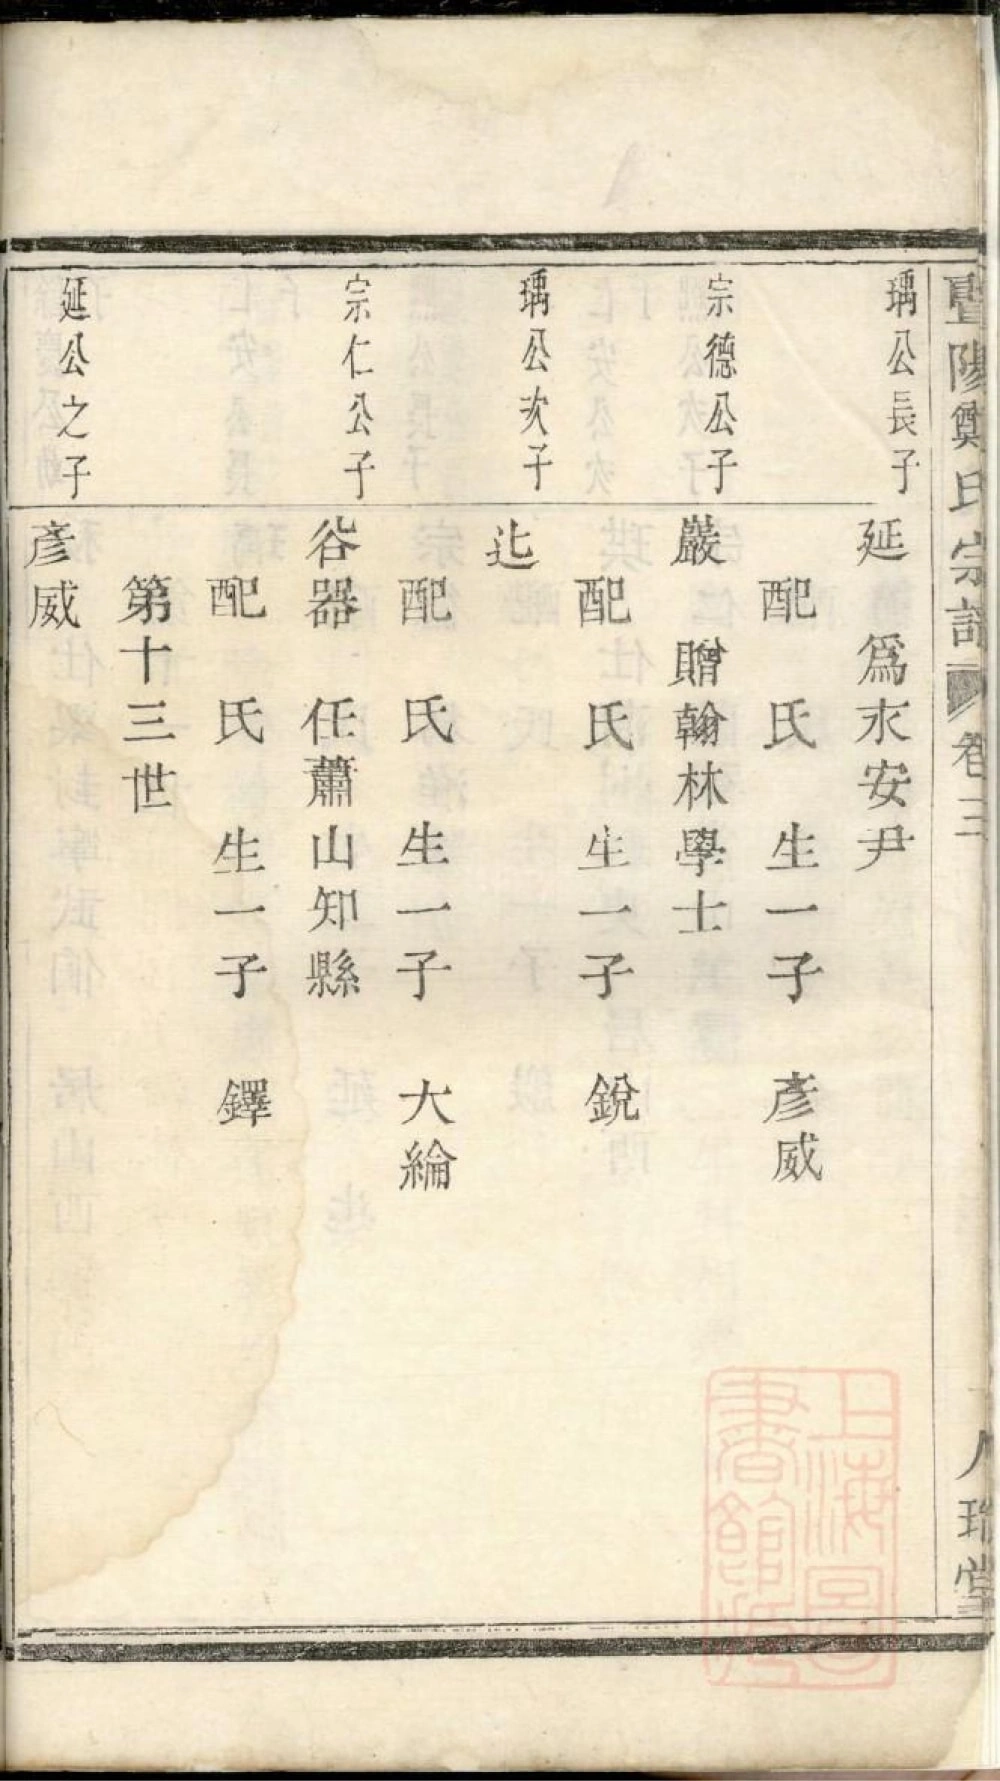 暨陽鄭氏宗譜 卷三 八瑞堂
瑀公長子
延 爲永安尹
配 氏 生一子 彥威
宗德公子
巖 贈翰林學士
配 氏 生一子 銳
瑀公次子
配 氏 生一子 大綸
宗仁公子
谷器 任蕭山知縣
配 氏 生一子 鐸
第十三世
延公之子
彥威
上海圖書館藏